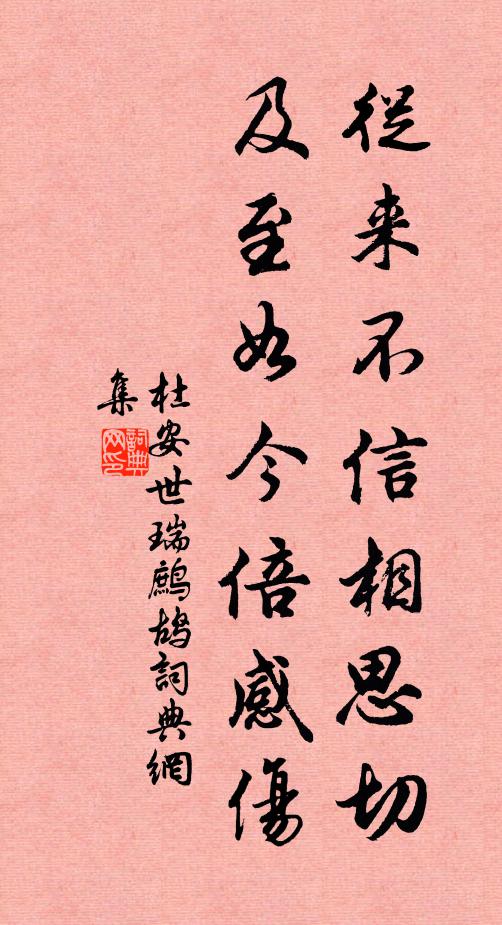 從来不信相思切
及至如今倍感傷
杜安世瑞鷓鴣詞典網
集
詞典
网印